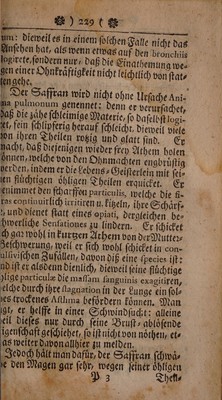 ) 229 (
um: dieweil es in einem solchen Falle nicht das
Ansehen hat, als wenn etwas auf den bronchiis
logirete, sondern nur, daß die Einathemung we-
gen einer Ohnkräftigkeit nicht leichtlich von stat-
ten gehe.
Der Saffran wird nicht ohne Ursache Ani-
ma pulmonum genennet: denn er verursachet,
daß die zähe schleimige Materie, so daselbst logi-
ret, fein schlipferig herauf schleicht, dieweil viele
von ihren Theilen voßig und glatt sind. Er
macht, daß diejenigen wieder frey Athem holen
können, welche von den Ohnmachten engbrüstig
werden, indem er die Lebens-Geisterlein mit sei-
nen flüchtigen öhligen Theilen erquicket. Er
benimmet den scharffen particulis, welche die fi-
bras continuirlich irritiren u. kigeln, ihre Schärf-
fe, und dienet statt eines opiati, dergleichen be-
schwerliche Sensationes zu lindern. Er schicket
sich gar wohl in kurtzem Athem von der Mutter-
Beschwerung, weil er sich wohl schicket in con-
vulsivischen Zufällen, davon diß eine species ist:
und ist er alsdenn dienlich, dieweil seine flüchtige
öhlige particulæ die massam sanguinis exagitiren,
welche durch ihre stagnation in der Lunge ein sol-
ches trockenes Asthma befördern können. Man
sagt, er helffe in einer Schwindsucht: alleine
weil dieses nur durch seine Brust-ablösende
Eigenschaft geschiehet, so ist nicht von nöthen, et-
was weiter davon allhier zu melden.
Jedoch hält man dafür, der Saffran schwä-
che den Magen gar sehr, wegen seiner öhligen
P 3 Thei-